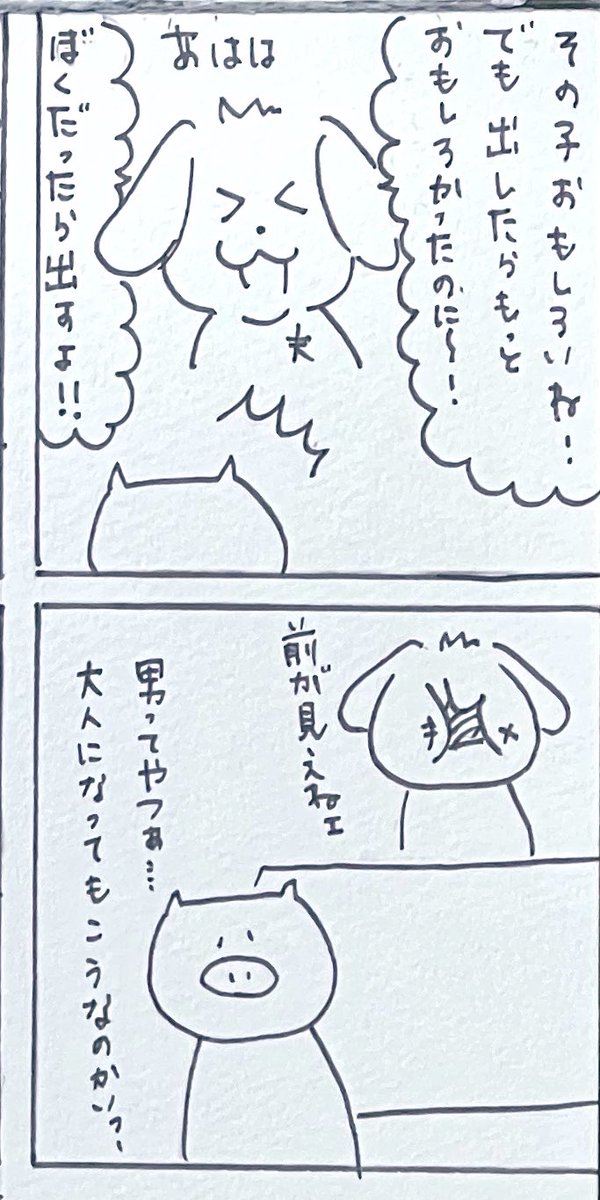 その子おもしろいね！
でも出したらもっと
おもしろかったのに〜！
あはは
夫
ぼくだったら出すよ！！
前が見えねェ
男ってやつぁ…
大人になってもこうなのかい？